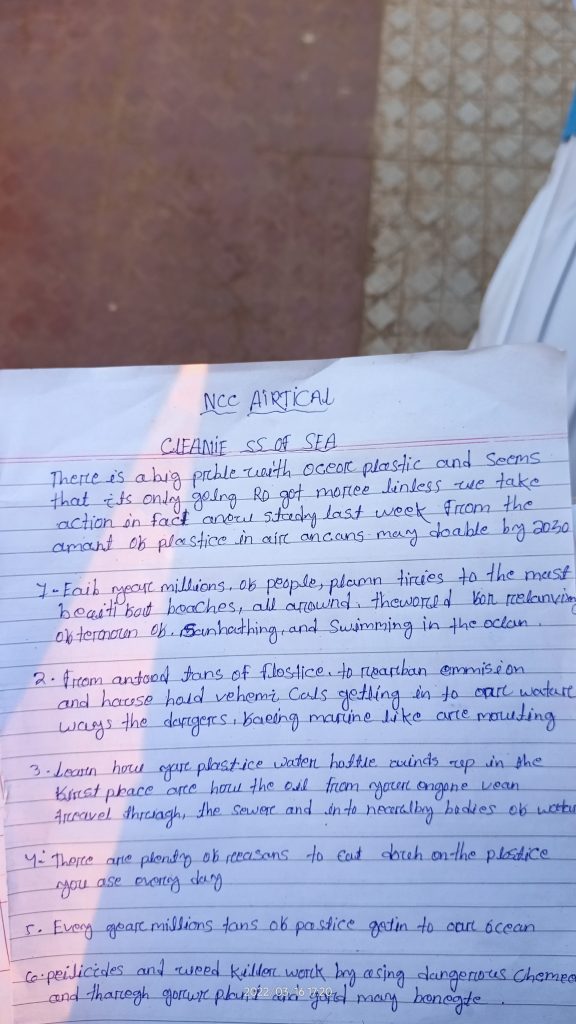 NCC AIRTICAL
CLEANIE SS OF SEA
There is a big prble with oceor plastic and seems
that its only going Ro got morree linless we take
action in fact anow study last week from the
amant ob plastice in airc ancans may doable by 2030
1- Eaib year millions, ob people, plamn tircies to the mast
beasti bout beaches, all around. theworld bor
ob ternoun ob. Sunbathing, and swimming in the oclan.
2. from antood tans of flostice. to nearban emmision
and house hold vehemi Cals getling in to oarc wature
ways the dargers, baeing marine like are mounting
3. Learn how yarc plastice water hottle winds up in the
birst pbace are how the oil from yourc engone vean
treavel through, the sewer and into nearalby bodies ob
4. There are plendy ob reeasons to cut doreh on the plostice
you ase every day
5. Every yearc millions tans ob pastice getin to oarc ocean
6. peilicides and weed killer work by asing dangerous
and tharegh yorur plant an yard may
2022.03.16 17:20